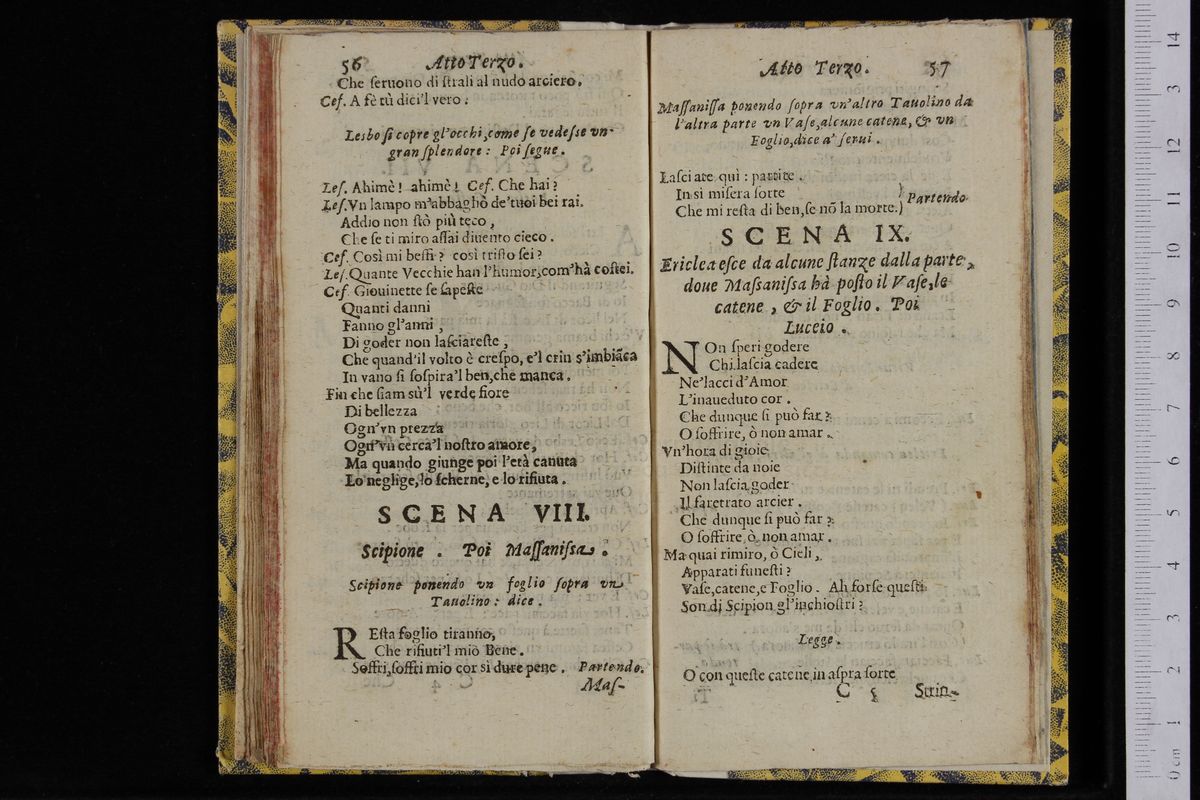 56 Atto Terzo.
Che ſeruono di ſtrali al nudo arciero.
Ceſ. A fè tù dici'l vero.
Lesbo ſi copre gl'occhi, come ſe vedeſse vn
gran ſplendore: Poi ſegue.
Leſ. Ahimè! ahimè! Ceſ. Che hai?
Leſ. Vn lampo m'abbagliò de'tuoi bei rai.
Addio non ſtò più teco,
Che ſe ti miro aſſai diuento cieco.
Ceſ. Così mi beffi? così triſto ſei?
Leſ. Quante Vecchie han l'humor, com'hà coſtei.
Ceſ. Giouinette ſe ſapeſte
Quanti danni
Fanno gl'anni,
Di goder non laſciareſte,
Che quand'il volto è creſpo, e'l crin s'imbiãca
In vano ſi ſoſpira'l ben, che manca.
Fin che ſiam sù'l verde fiore
Di bellezza
Ogn'vn prezza
Ogn'vn cerca'l noſtro amore,
Ma quando giunge poi l'età canuta
Lo neglige, lo ſcherne, e lo rifiuta.
SCENA VIII.
Scipione. Poi Maſſaniſsa.
Scipione ponendo vn foglio ſopra vn
Tauolino: dice.
REſta foglio tiranno,
Che rifiuti'l miò Bene.
Soffri, ſoffri mio cor sì dure pene. Partendo.
Maſ-
Atto Terzo. 57
Maſſaniſſa ponendo ſopra vn'altro Tauolino da
l'altra parte vn Vaſe, alcune catene, & vn
Foglio, dice a' ſerui.
Laſciate quì: partite.
In sì miſera ſorte
Che mi reſta di ben, ſe nõ la morte.) Partendo
SCENA IX.
Ericlea eſce da alcune ſtanze dalla parte,
doue Maſsaniſsa hà poſto il Vaſe, le
catene, & il Foglio. Poi
Luceio.
NOn ſperi godere
Chi laſcia cadere
Ne'lacci d'Amor
L'inaueduto cor.
Che dunque ſi può far?
O ſoffrire, ò non amar.
Vn'hora di gioie
Diſtinte da noie
Non laſcia goder
Il faretrato arcier.
Che dunque ſi può far?
O ſoffrire, ò non amar.
Ma quai rimiro, ò Cieli,
Apparati funeſti?
Vaſe, catene, e Foglio. Ah forſe queſti
Son di Scipion gl'inchioſtri?
Legge.
O con queſte catene in aſpra ſorte
C 5 Strin-
0 cm 1 2 3 4 5 6 7 8 9 10 11 12 13 14